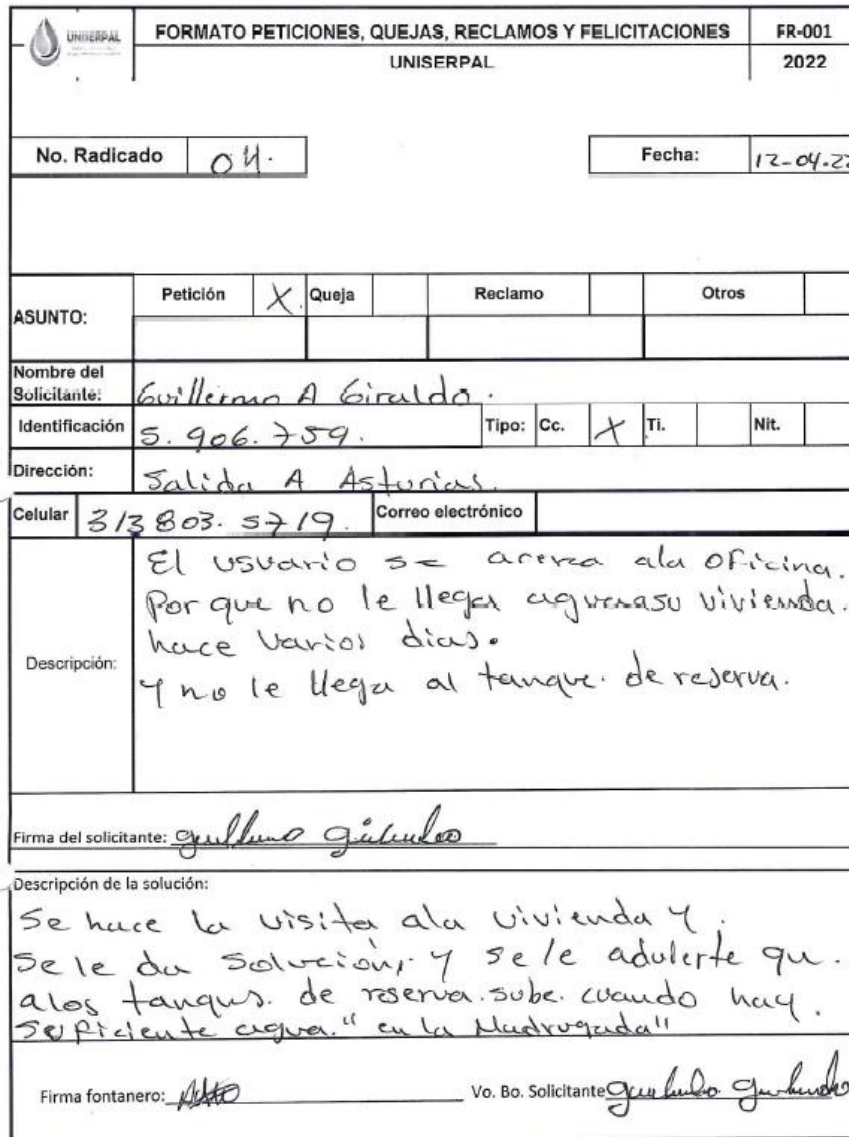 UNISERPAL
FORMATO PETICIONES, QUEJAS, RECLAMOS Y FELICITACIONES
FR-001
UNISERPAL
2022
No. Radicado
04.
Fecha:
12-04-22
ASUNTO:
Petición X.
Queja
Reclamo
Otros
Nombre del
Solicitante: Guillermo A Giraldo.
Identificación 5.906.759.
Tipo: Cc. X Ti. Nit.
Dirección: Salida A Asturias.
Celular 313 803. 5719.
Correo electrónico
Descripción:
El usuario se acerca ala oficina.
Por que no le llega agua a su vivienda.
hace varios dias.
Y no le llega al tanque. de reserva.
Firma del solicitante:
Descripción de la solución:
Se hace la visita ala vivienda y.
Se le da solución, y se le adulerte qu.
alos tanqus. de reserva. sube. cuando hay.
suficiente agua. "en la Madrugada"
Firma fontanero:
Vo. Bo. Solicitante